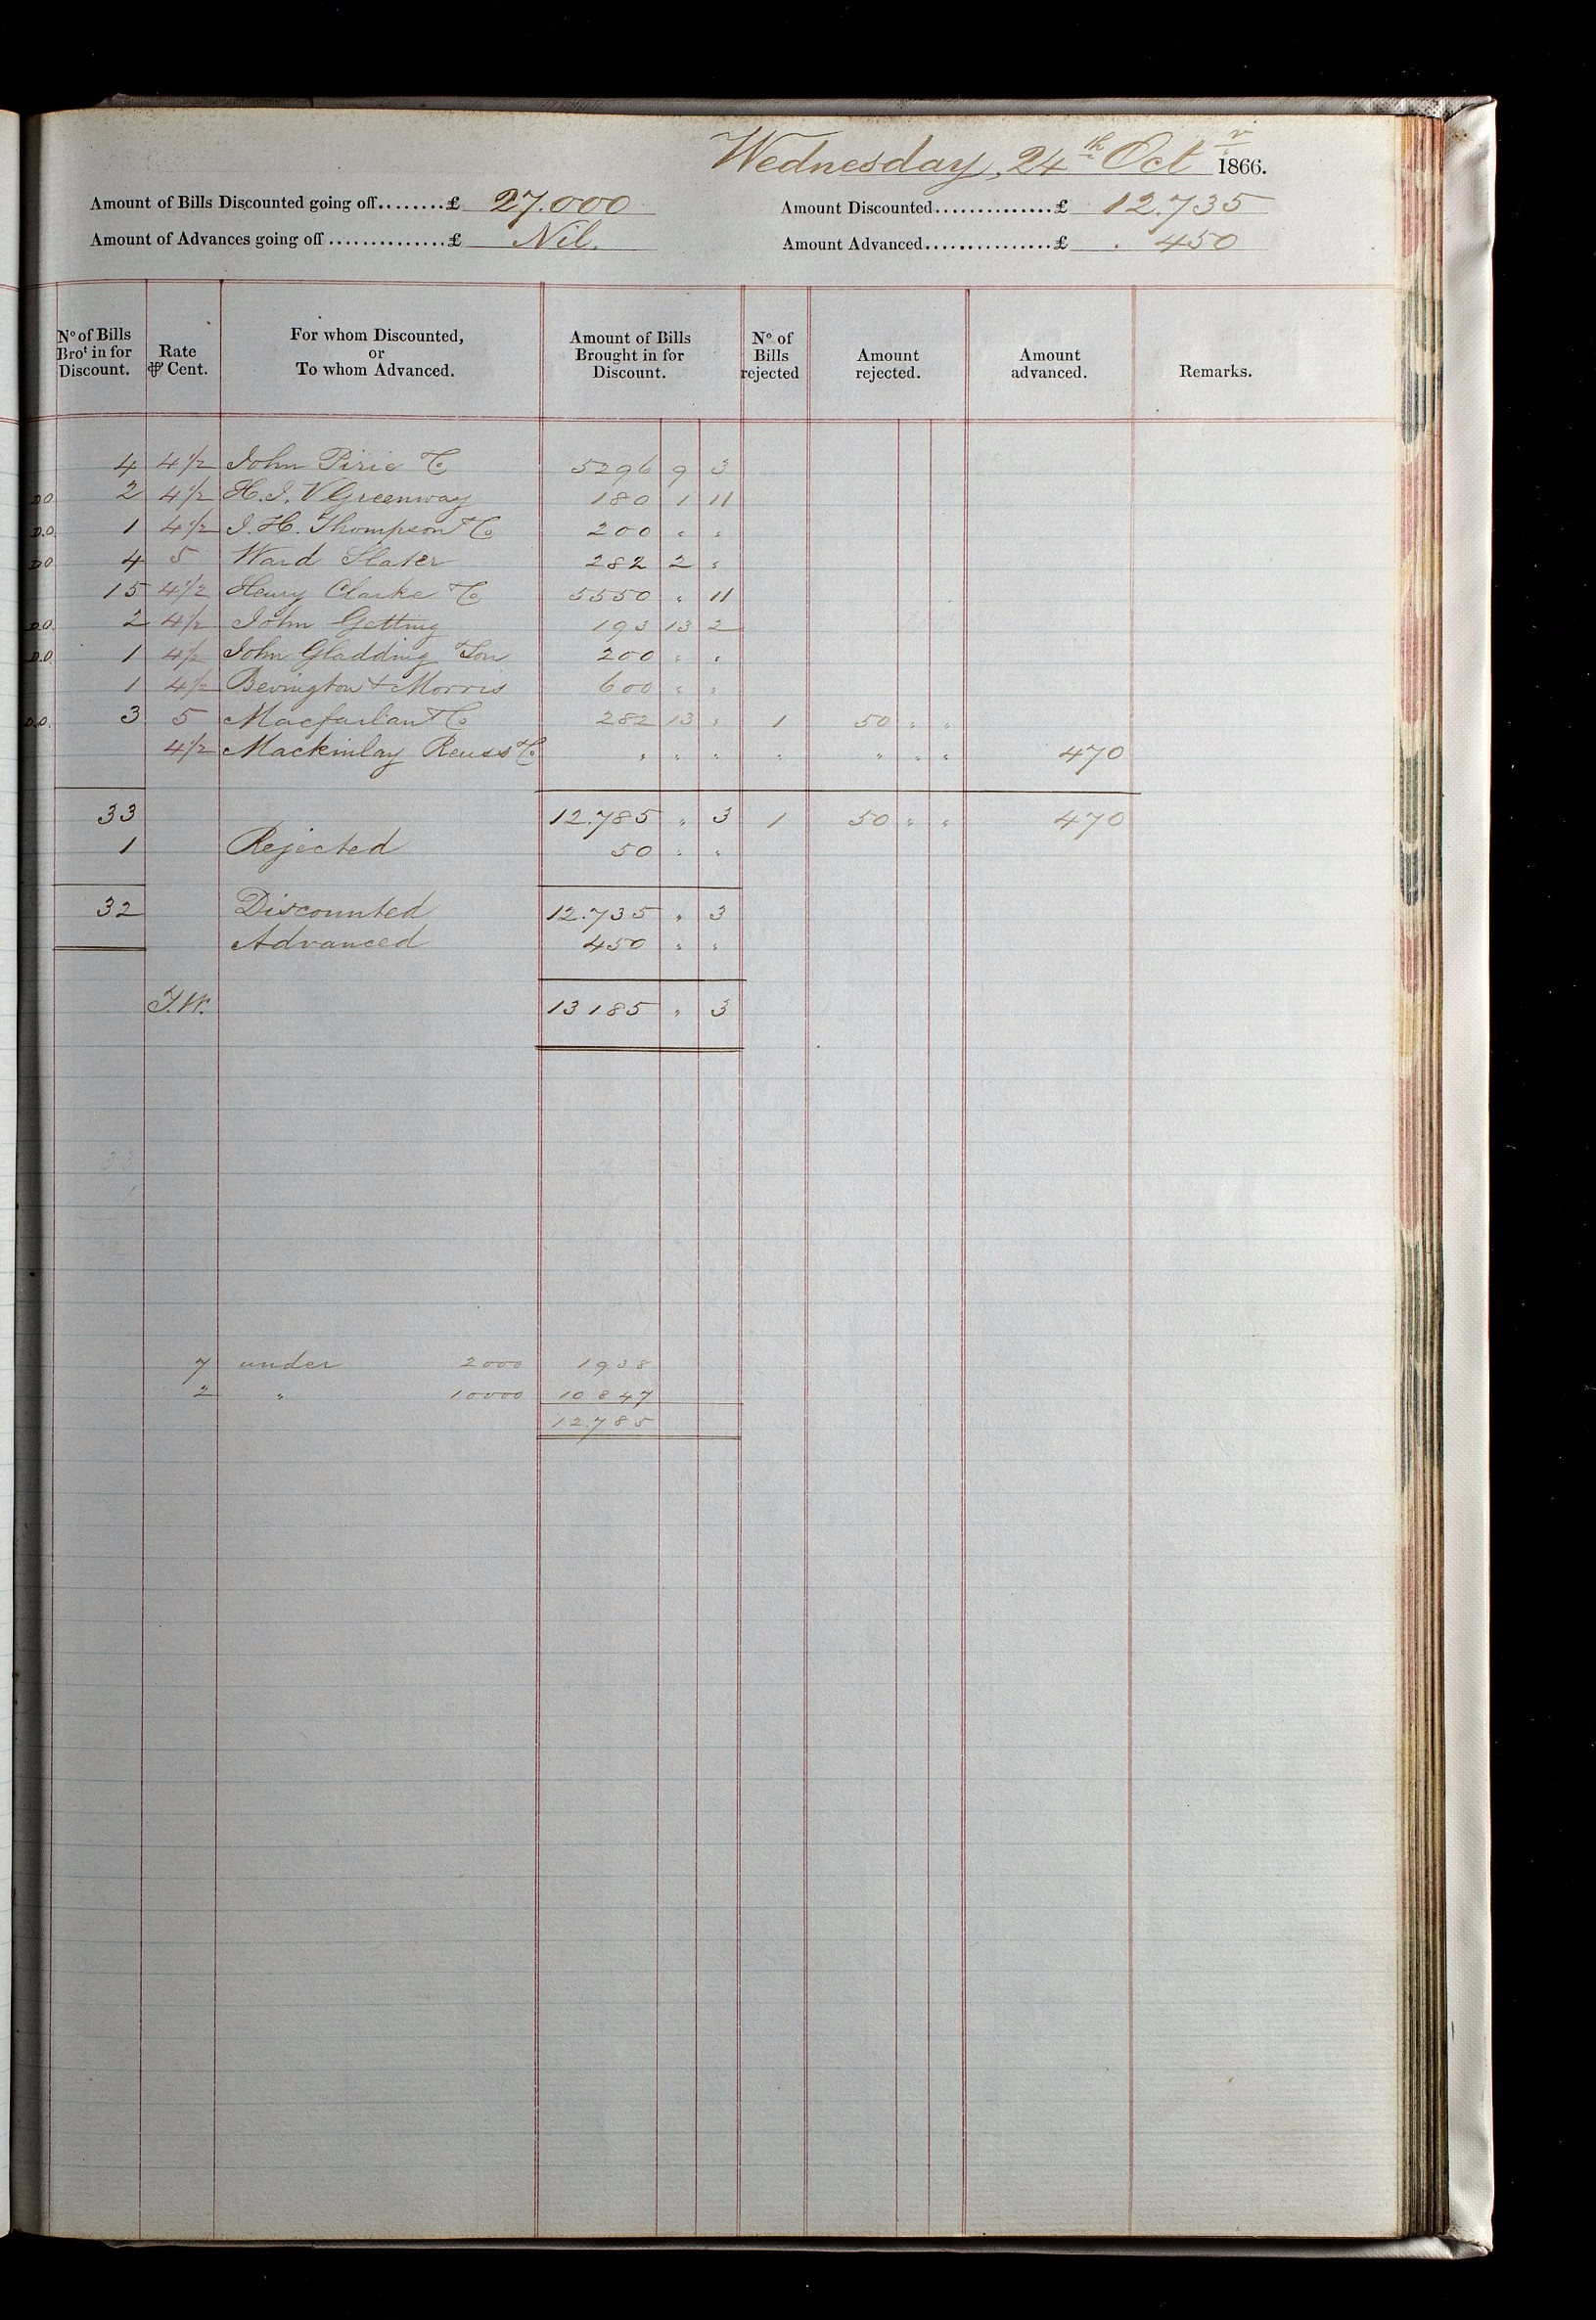 Wednesday, 24th Octr 1866.
Amount of Bills Discounted going off........£ 27.000 Amount Discounted..............£ 12.735
Amount of Advances going off..............£ Nil. Amount Advanced...............£ 450
No of Bills Brot in for Discount. Rate ⅌ Cent. For whom Discounted, or To whom Advanced. Amount of Bills Brought in for Discount. No of Bills rejected Amount rejected. Amount advanced. Remarks.
4 4½ John Pirie & Co 5296 9 3
D.O. 2 4½ H. I. V Greenway 180 1 11
D.O. 1 4½ J. H. Thompson & Co 200 " "
D.O. 4 5 Ward Slater 282 2 "
15 4½ Henry Clarke & Co 5550 " 11
D.O. 2 4½ John Getting 193 13 2
D.O. 1 4½ John Gladding & Son 200 " "
1 4½ Bevington & Morris 600 " "
D.O. 3 5 Macfarlan & Co 282 13 " 1 50 " "
4½ Mackinlay Reuss & Co " " " " " " " 470
33 12.785 " 3 1 50 " " 470
1 Rejected 50 " "
32 Discounted 12.735 " 3
Advanced 450 " "
13185 " 3
7 under 2000 1938
2 " 10000 10847
12.785